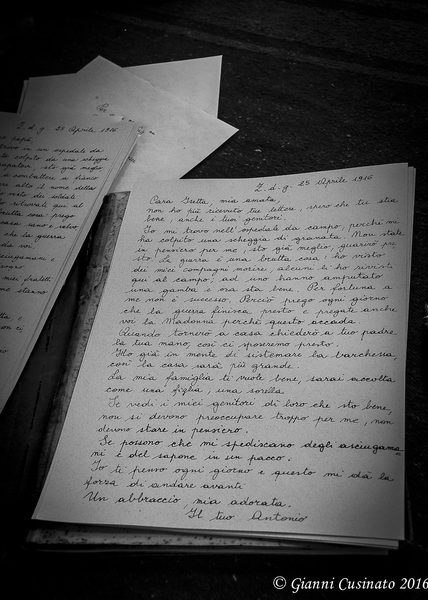 Z. d. g. 25 Aprile 1916
Cara Gretta, mia amata,
non ho più ricevuto tue lettere, spero che tu stia
bene, anche i tuoi genitori.
Io mi trovo nell'ospedale da campo, perché mi
ha colpito una scheggia di granata. Non state
in pensiero per me, sto già meglio, guarirò pre
sto. La guerra è una brutta cosa, ho visto
dei miei compagni morire, alcuni li ho rivisti
qui al campo, ad uno hanno amputato
una gamba e ora sta bene. Per fortuna a
me non è successo. Perciò prego ogni giorno
che la guerra finisca presto e pregate anche
voi la Madonna perché questo accada.
Quando tornerò a casa chiederò a tuo padre
la tua mano, così ci sposeremo presto.
Ho già in mente di sistemare la barchessa,
così la casa sarà più grande.
La mia famiglia ti vuole bene, sarai accolta
come una figlia, una sorella.
Se vedi i miei genitori di loro che sto bene,
non si devono preoccupare troppo per me, non
devono stare in pensiero.
Se possono che mi spediscano degli asciugama
ni e del sapone in un pacco.
Io ti penso ogni giorno e questo mi dà la
forza di andare avanti
Un abbraccio, mia adorata.
Il tuo Antonio
Z. d. g. 25 Aprile 1916
papà
trovo in un ospedale da
colpito da una scheggia
sto già meglio
a combattere in bianco
alto il nome della
visto dei soldati
ritornare qui al
brutta cosa, prego
casa, sano e salvo
che la guerra
da voi
asciugamani e
bisogno
miei fratelli
me staremo
© Gianni Cusinato 2016